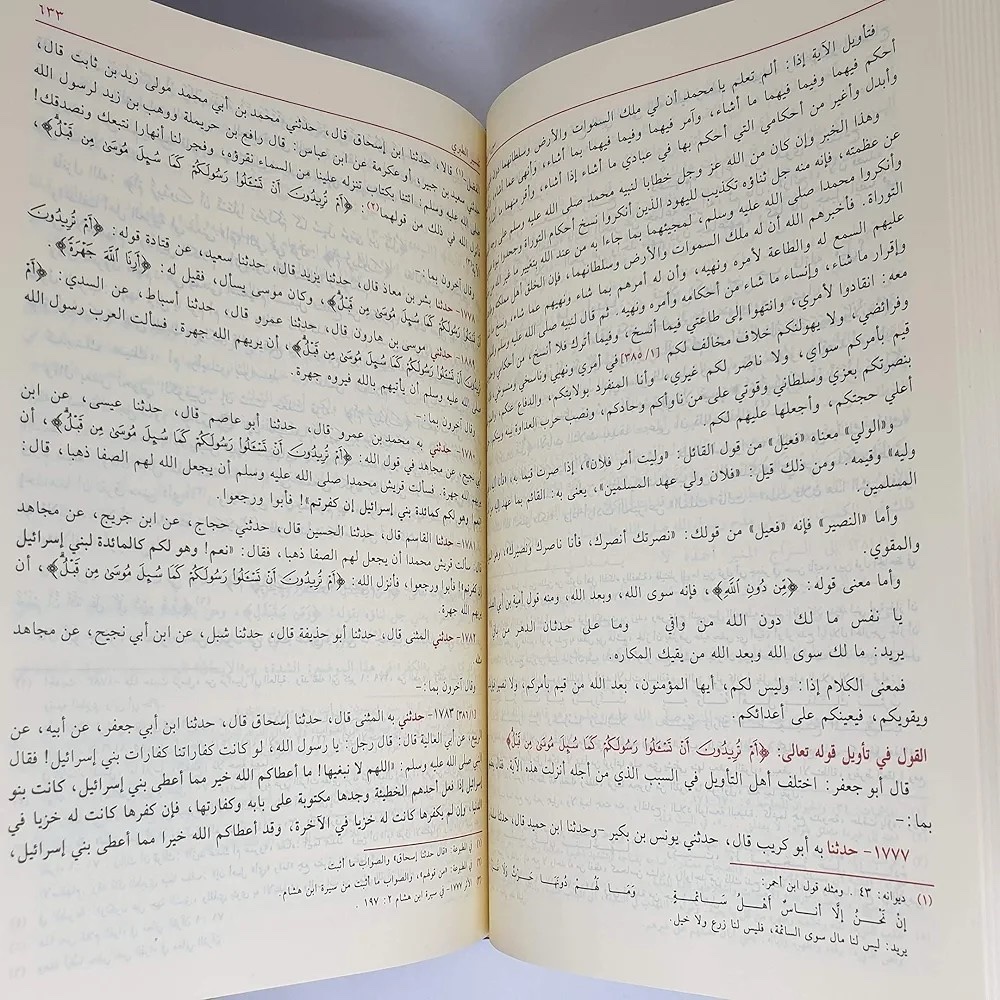 فتأويل الآية إذا: ألم تعلم يا محمد أن لي ملك السموات والأرض وسلطانهما
أحكم فيهما وفيما فيهما ما أشاء، وآمر فيهما وفيما فيهما بما أشاء، وأنهى عما أشاء
وأبدل وأغير من أحكامي التي أحكم بها في عبادي ما أشاء إذا أشاء، وأقر منهما ما
وهذا الخبر وإن كان من الله عز وجل خطابا لنبيه محمد صلى الله عليه وسلم على وجه
عن عظمته، فإنه منه جل ثناؤه تكذيب لليهود الذين أنكروا نسخ أحكام التوراة وجحدوا
وأنكروا محمدا صلى الله عليه وسلم، لمجيئهما بما جاءا به من عند الله بتغيير ما غير
التوراة. فأخبرهم الله أن له ملك السموات والأرض وسلطانهما، فإن الخلق أهل مملكته
عليهم السمع له والطاعة لأمره ونهيه، وأن له أمرهم بما شاء ونهيهم عما شاء
وإقرار ما شاء، وإنساء ما شاء من أحكامه وأمره ونهيه. ثم قال لنبيه صلى الله عليه وسلم
معه: انقادوا لأمري، وانتهوا إلى طاعتي فيما أنسخ، وفيما أترك فلا أنسخ، من أحكامي
وفرائضي، ولا يهولنكم خلاف مخالف لكم [١/ ٣٨٥] في أمري ونهيي وناسخي ومنسوخي
قيم بأمركم سواي، ولا ناصر لكم غيري، وأنا المنفرد بولايتكم، والدفاع عنكم
بنصرتكم بعزي وسلطاني وقوتي على من ناوأكم وحادكم، ونصب حرب العداوة بينه
أعلي حجتكم، وأجعلها عليهم لكم.
و«الولي» معناه «فعيل» من قول القائل: «وليت أمر فلان»، إذا صرت قيما به، فأنا
وليه» وقيمه. ومن ذلك قيل: «فلان ولي عهد المسلمين»، يعنى به: القائم بما عهد إليه
المسلمين.
وأما «النصير» فإنه «فعيل» من قولك: «نصرتك أنصرك، فأنا ناصرك ونصيرك»، وهو
والمقوي.
وأما معنى قوله: ﴿مِّن دُونِ ٱللَّهِ﴾، فإنه سوى الله، وبعد الله، ومنه قول أمية بن أبي
يا نفس ما لك دون الله من واقي وما على حدثان الدهر من
يريد: ما لك سوى الله وبعد الله من يقيك المكاره.
فمعنى الكلام إذا: وليس لكم، أيها المؤمنون، بعد الله من قيم بأمركم، ولا نصير
ويقويكم، فيعينكم على أعدائكم.
القول في تأويل قوله تعالى: ﴿أَمْ تُرِيدُونَ أَن تَسْـَٔلُوا۟ رَسُولَكُمْ كَمَا سُئِلَ مُوسَىٰ مِن قَبْلُ﴾
قال أبو جعفر: اختلف أهل التأويل في السبب الذي من أجله أنزلت هذه الآية. فقال
بما:-
١٧٧٧- حدثنا به أبو كريب قال، حدثني يونس بن بكير -وحدثنا ابن حميد قال، حدثنا
(١) ديوانه: ٤٣. ومثله قول ابن أحمر:
إِنْ نَحْنُ إِلَّا أُنَاسٌ أَهْلُ سَائِمَةٍ وَمَا لَهُمْ دُونَهَا حَرْثٌ وَلَا
يريد: ليس لنا مال سوى السائمة، فليس لنا زرع ولا خيل.
٦٣٣
الفضل قالا، حدثنا ابن إسحاق قال، حدثني محمد بن أبي محمد مولى زيد بن ثابت قال،
سعيد بن جبير، أو عكرمة عن ابن عباس: قال رافع بن حريملة ووهب بن زيد لرسول الله
صلى الله عليه وسلم: ائتنا بكتاب تنزله علينا من السماء نقرؤه، وفجر لنا أنهارا نتبعك ونصدقك!
الله في ذلك من قولهما(٢): ﴿أَمْ تُرِيدُونَ أَن تَسْـَٔلُوا۟ رَسُولَكُمْ كَمَا سُئِلَ مُوسَىٰ مِن قَبْلُ﴾،
وقال آخرون بما:-
١٧٧٨- حدثنا بشر بن معاذ قال، حدثنا يزيد قال، حدثنا سعيد، عن قتادة قوله: ﴿أَمْ تُرِيدُونَ
أَن تَسْـَٔلُوا۟ رَسُولَكُمْ كَمَا سُئِلَ مُوسَىٰ مِن قَبْلُ﴾، وكان موسى يسأل، فقيل له: ﴿أَرِنَا ٱللَّهَ جَهْرَةً﴾.
حدثني موسى بن هارون قال، حدثنا عمرو قال، حدثنا أسباط، عن السدي: ﴿أَمْ
تُرِيدُونَ أَن تَسْـَٔلُوا۟ رَسُولَكُمْ كَمَا سُئِلَ مُوسَىٰ مِن قَبْلُ﴾، أن يريهم الله جهرة. فسألت العرب رسول الله
صلى الله عليه وسلم أن يأتيهم بالله فيروه جهرة.
وقال آخرون بما:-
١٧٨٠- حدثني به محمد بن عمرو قال، حدثنا أبو عاصم قال، حدثنا عيسى، عن ابن
أبي نجيح، عن مجاهد في قول الله: ﴿أَمْ تُرِيدُونَ أَن تَسْـَٔلُوا۟ رَسُولَكُمْ كَمَا سُئِلَ مُوسَىٰ مِن قَبْلُ﴾، أن
الله جهرة. فسألت قريش محمدا صلى الله عليه وسلم أن يجعل الله لهم الصفا ذهبا، قال:
وهو لكم كمائدة بني إسرائيل إن كفرتم»! فأبوا ورجعوا.
١٧٨١- حدثنا القاسم قال، حدثنا الحسين قال، حدثني حجاج، عن ابن جريج، عن مجاهد
قال: سألت قريش محمدا أن يجعل لهم الصفا ذهبا، فقال: «نعم! وهو لكم كالمائدة لبني إسرائيل
إن كفرتم»! فأبوا ورجعوا، فأنزل الله: ﴿أَمْ تُرِيدُونَ أَن تَسْـَٔلُوا۟ رَسُولَكُمْ كَمَا سُئِلَ مُوسَىٰ مِن قَبْلُ﴾، أن
يريهم الله جهرة.
١٧٨٢- حدثني المثنى قال، حدثنا أبو حذيفة قال، حدثنا شبل، عن ابن أبي نجيح، عن مجاهد
وقال آخرون بما:-
[١/ ٣٨٦] ١٧٨٣- حدثني به المثنى قال، حدثنا إسحاق قال، حدثنا ابن أبي جعفر، عن أبيه، عن
الربيع، عن أبي العالية قال: قال رجل: يا رسول الله، لو كانت كفاراتنا كفارات بني إسرائيل! فقال
النبي صلى الله عليه وسلم: «اللهم لا نبغيها! ما أعطاكم الله خير مما أعطى بني إسرائيل، كانت بنو
إسرائيل إذا فعل أحدهم الخطيئة وجدها مكتوبة على بابه وكفارتها، فإن كفرها كانت له خزيا في
الدنيا، وإن لم يكفرها كانت له خزيا في الآخرة، وقد أعطاكم الله خيرا مما أعطى بني إسرائيل،
(١) في المطبوعة: «قال حدثنا إسحاق»، والصواب ما أثبت.
في المطبوعة: «من قولهم»، والصواب ما أثبت من سيرة ابن هشام.
الأثر ١٧٧٧- في سيرة ابن هشام ٢: ١٩٧.